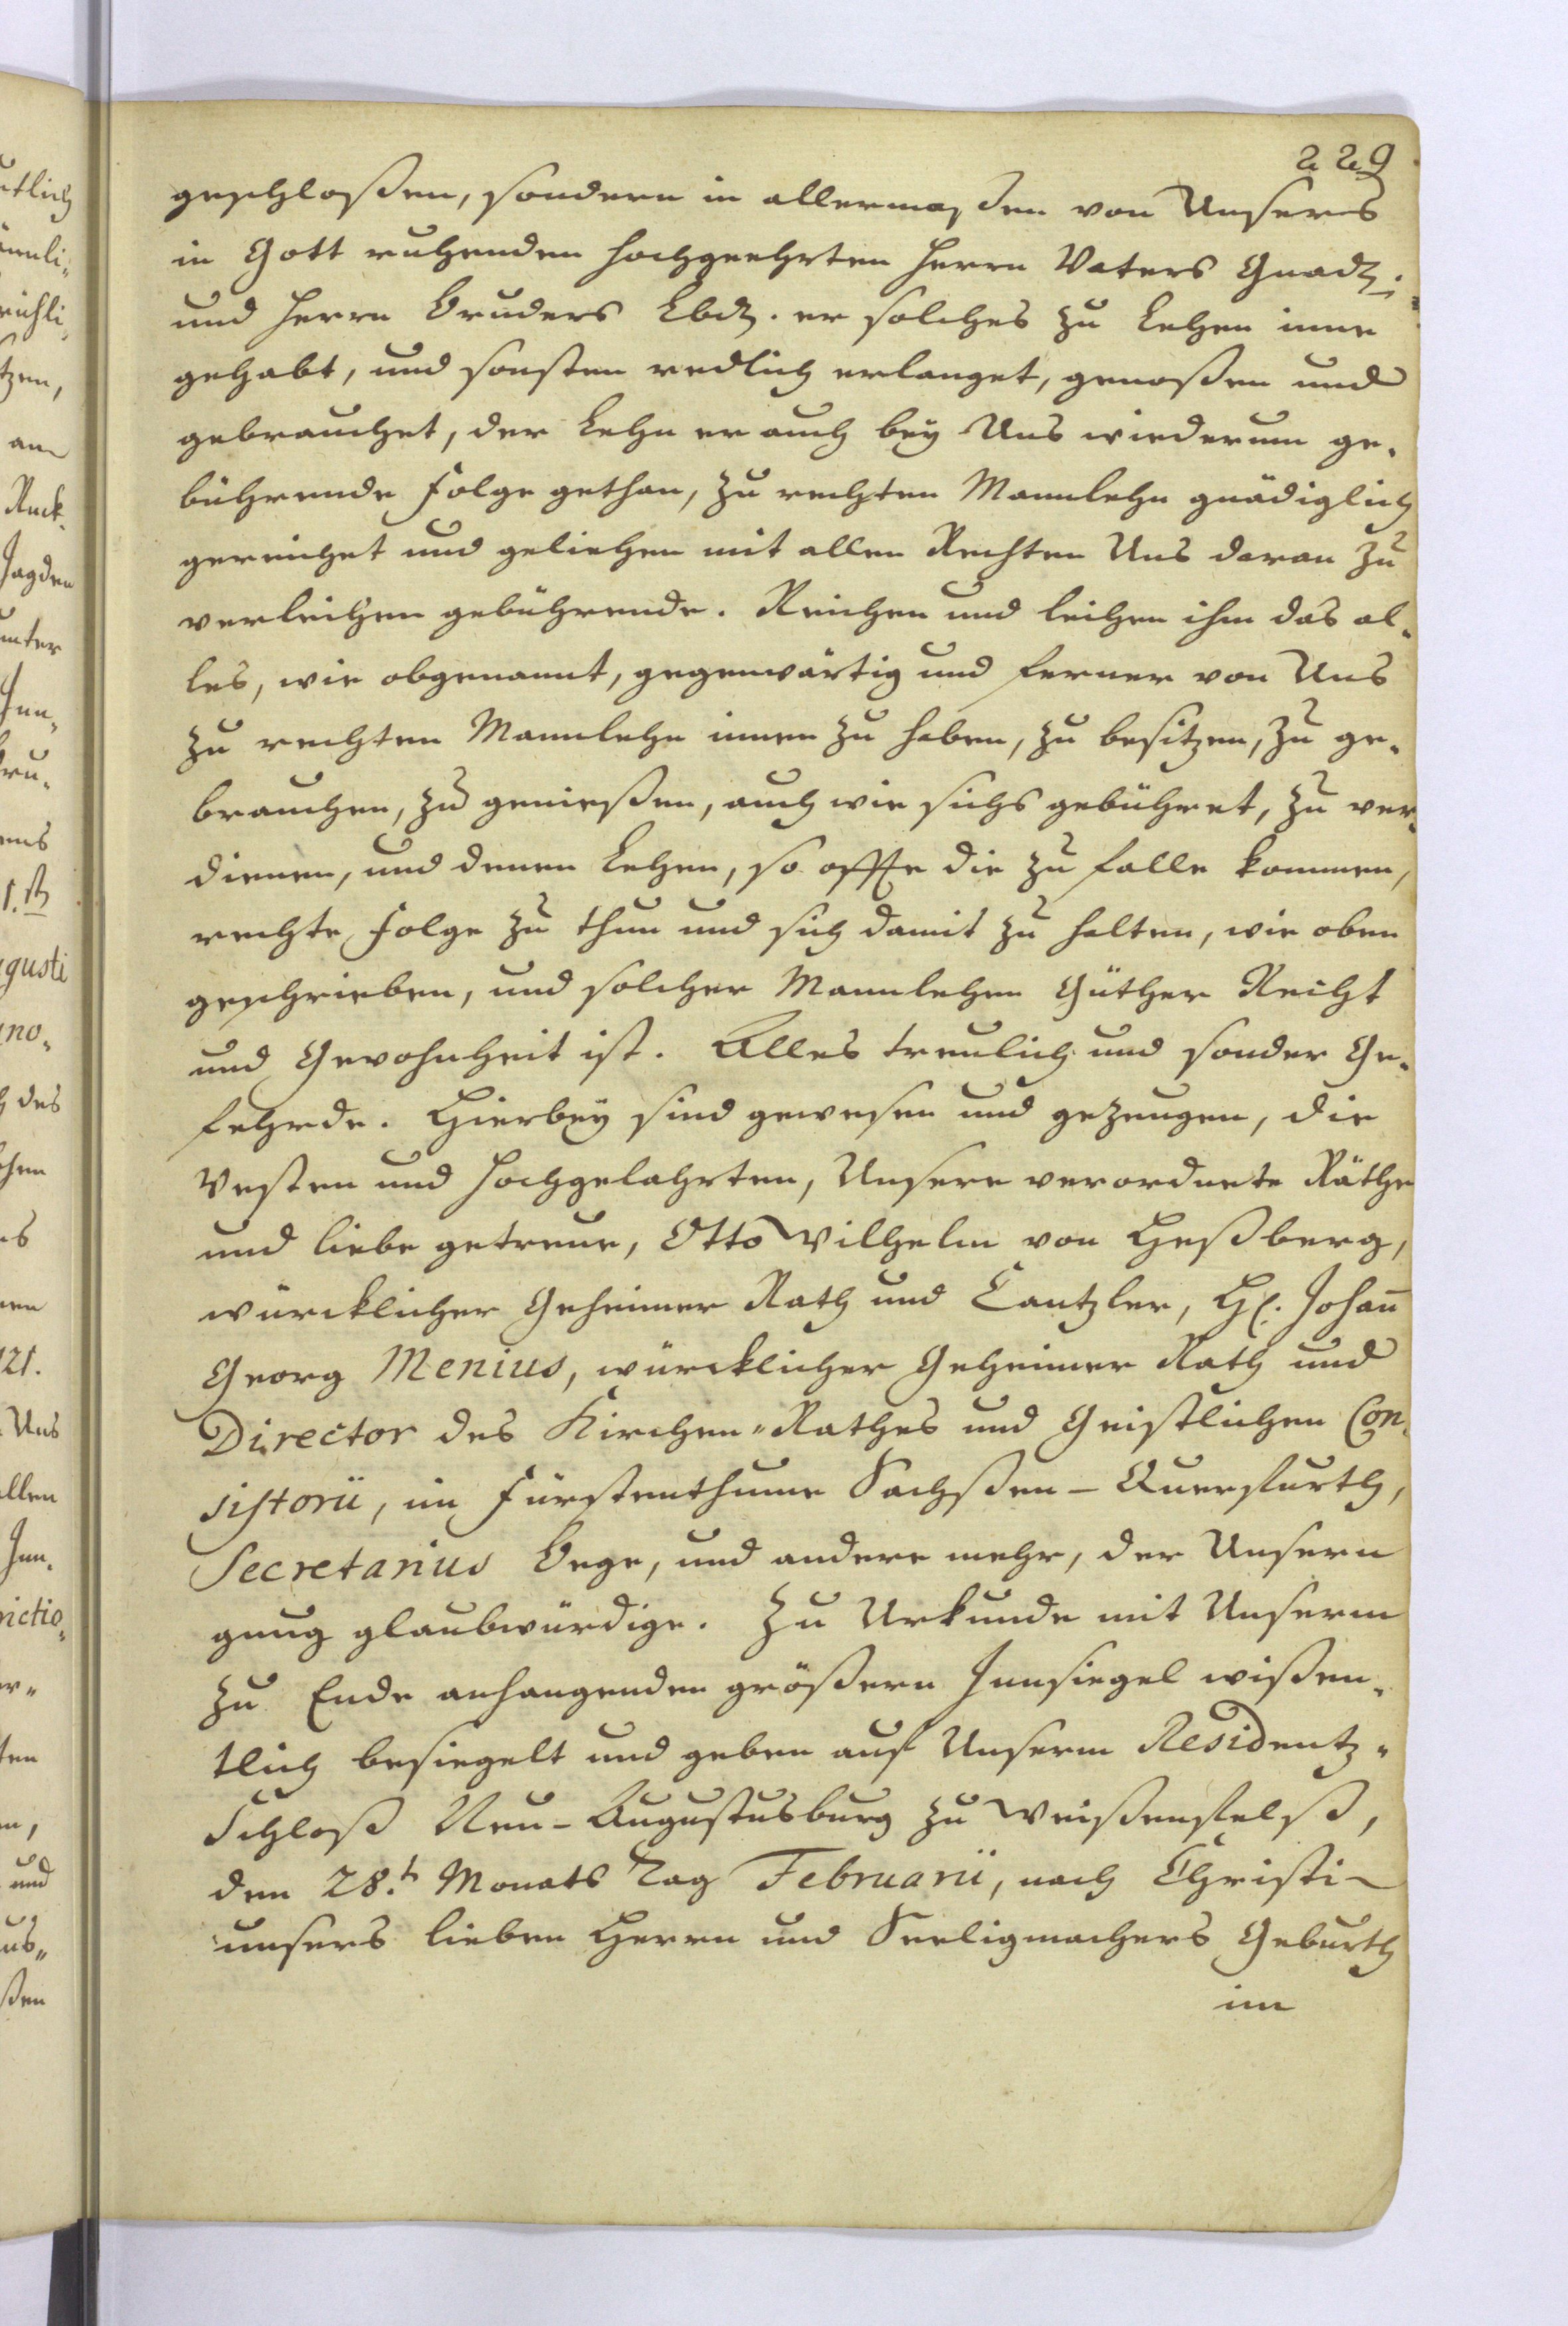 229
geschloßen, sondern in allermaßen von Unsers
in Gott ruhenden hochgeehrten Herrn Vaters Gnad.
und Herrn Bruders Lbd. er solches zu Lehen inne
gehabt, und sonsten redlich erlanget, genoßen und
gebrauchet, der Lehn er auch bey Uns wiederum ge-
bührende Folge gethan, zu rechten Mannlehn gnädiglich
gereichet und geliehen mit allen Rechten Uns daran zu
verleihen gebührende. Reichen und leihen ihm das al-
les, wie obgenannt, gegenwärtig und ferner von Uns
zu rechten Mannlehn innen zu haben, zu besitzen, zu ge-
brauchen, zu genießen, auch wie sichs gebühret, zu ver-
dienen, und denen Lehen, so offte die zu falle kommen,
rechte Folge zu thun und sich damit zu halten, wie oben
geschrieben, und solcher Mannlehen Güther Recht
und Gewohnheit ist. Alles treulich und sonder Ge-
fehrde. Hierbey sind gewesen und gezeugen, die
Vesten und Hochgelahrten, Unsere verordnete Räthe
und liebe getreue, Otto Wilhelm von Heßberg,
würcklicher Geheimer Rath und Cantzler, H. Johañ
Georg Menius, würcklicher Geheimer Rath und
Director des Kirchen-Rathes und Geistlichen Con-
sistorii, im Fürstenthume Sachßen-Querfurth,
Secretarius Bege, und andere mehr, der Unsern
gnug glaubwürdige. Zu Urkunde mit Unserm
zu Ende anhangenden größern Innsiegel wißen-
tlich besiegelt und geben auf Unserm Residentz-
Schloß Neu-Augustusburg zu Weißenfelß,
den 28.t Monats Tag Februarii, nach Christi
unsers lieben Herrn und Seeligmachers Geburth
im